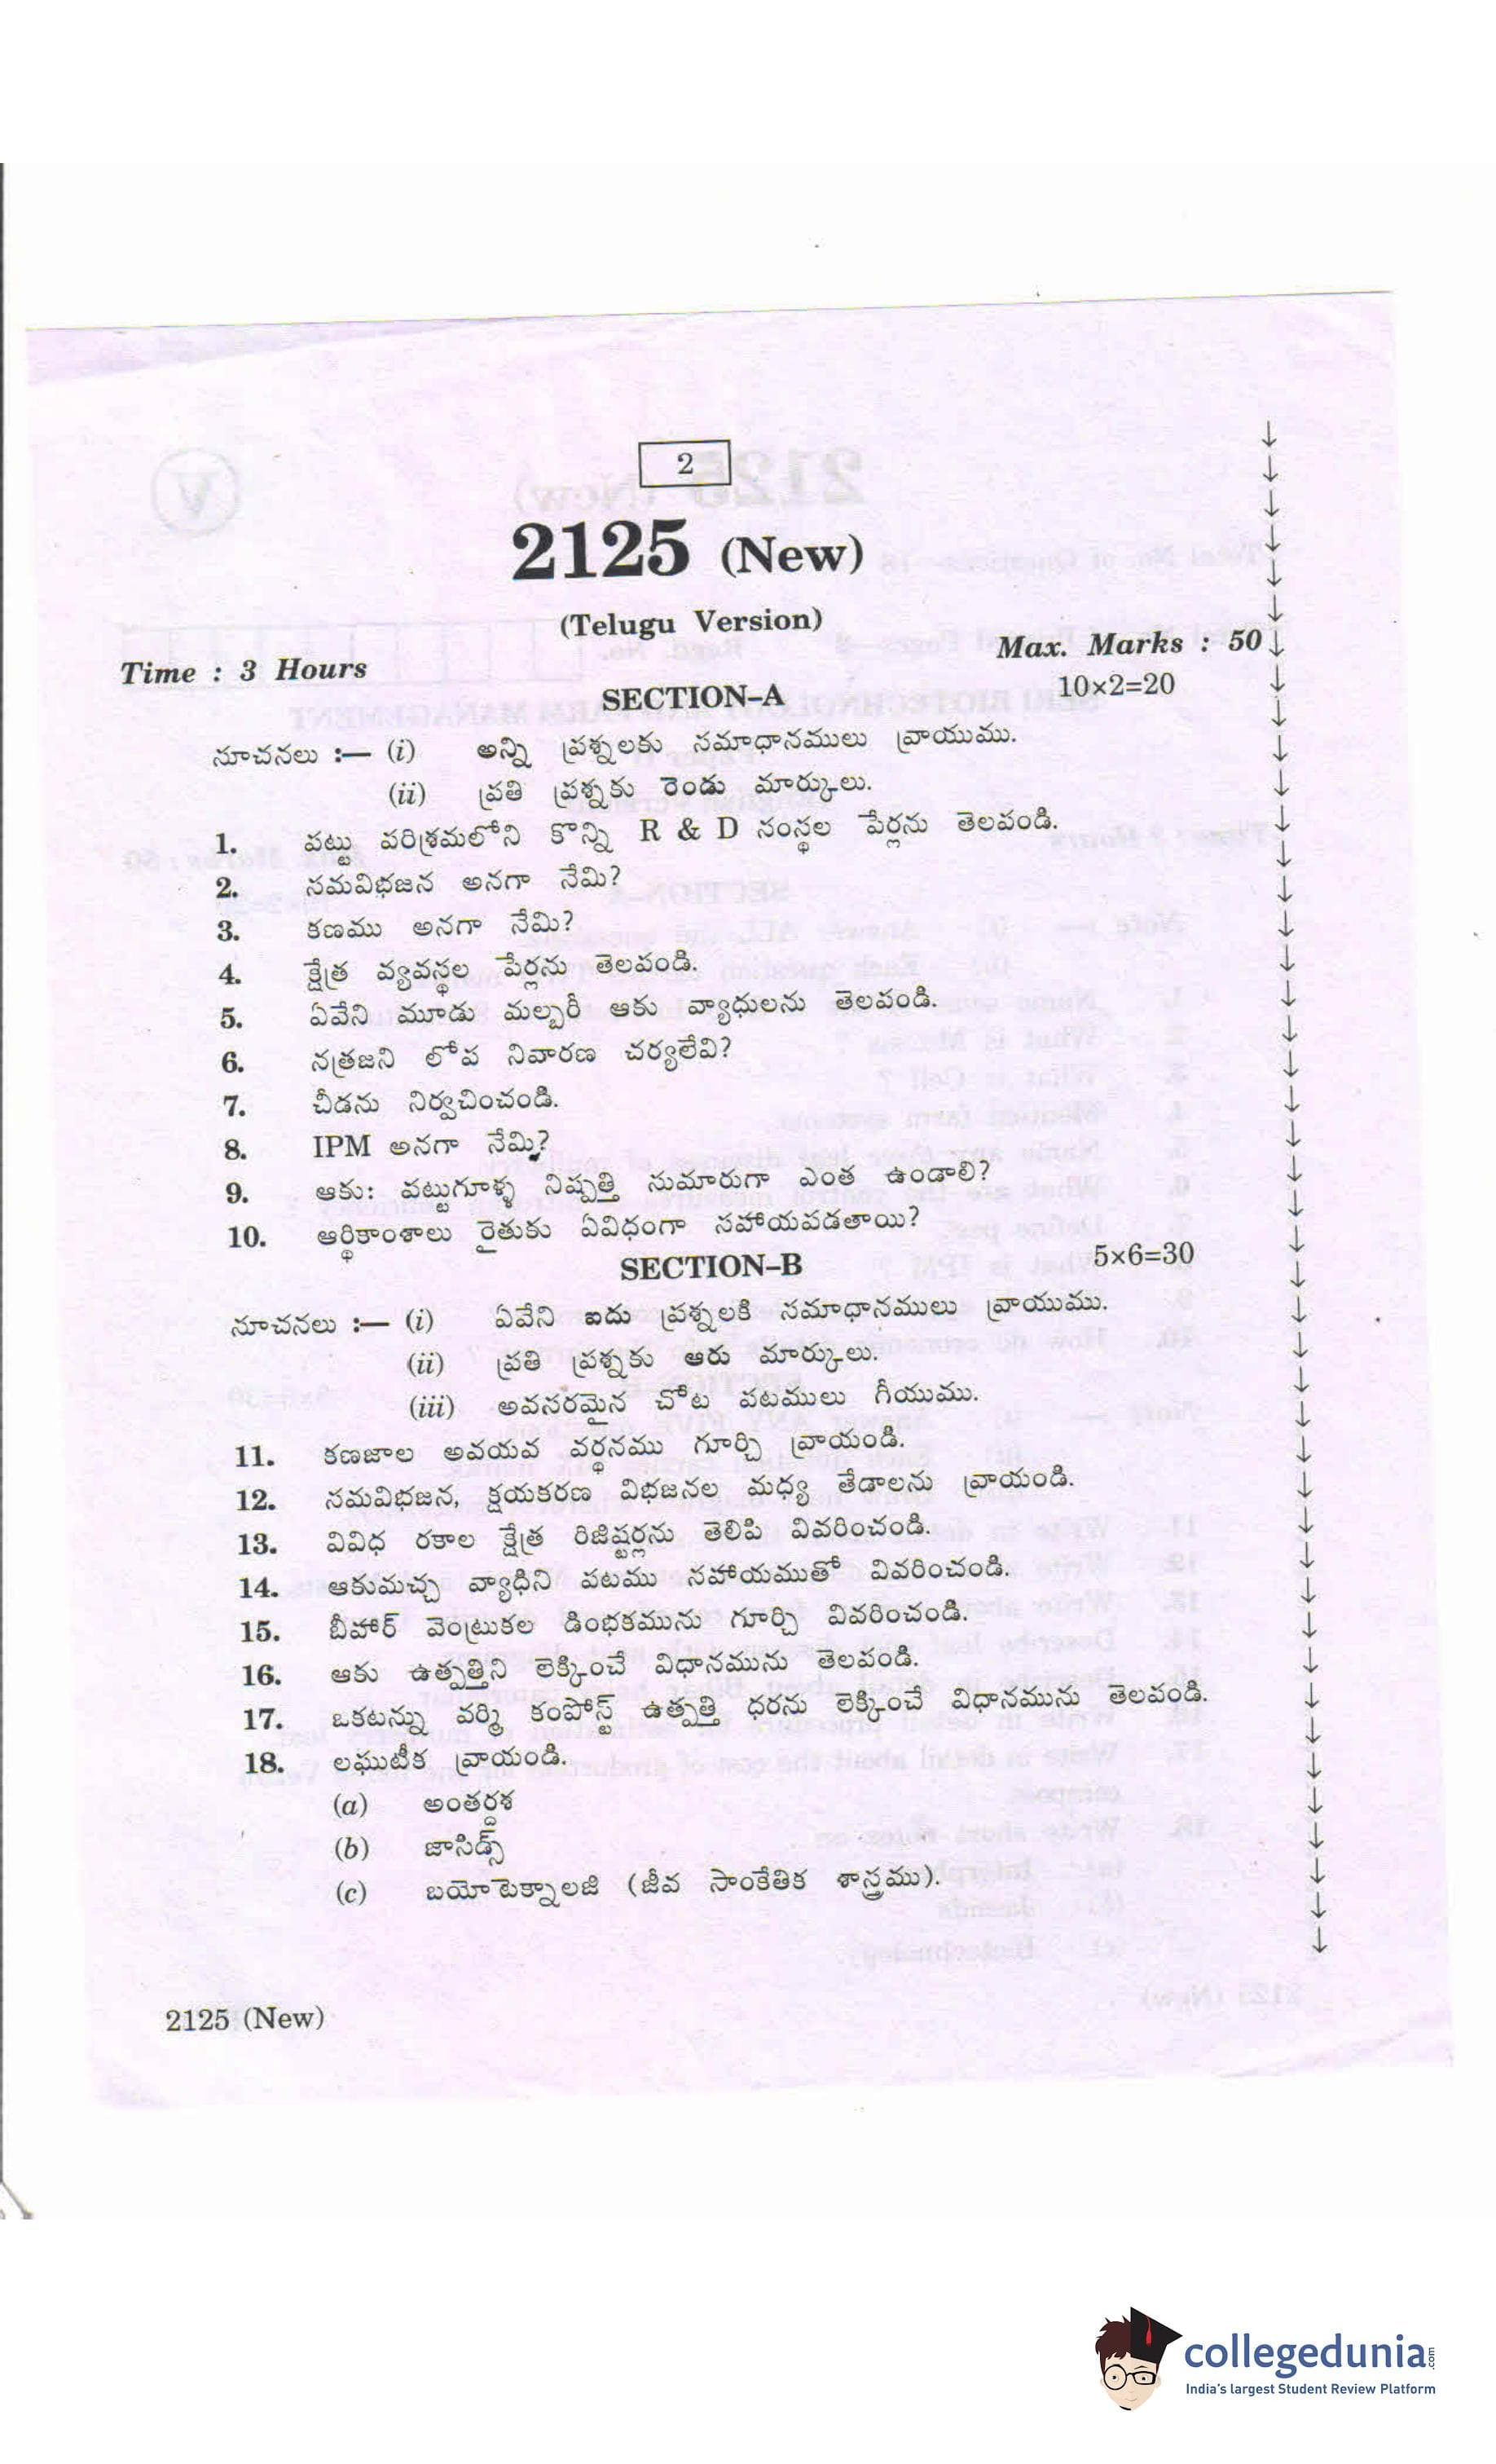 2
2125 (New)
(Telugu Version)
Time : 3 Hours
Max. Marks : 50
SECTION–A
10×2=20
సూచనలు :— (i) అన్ని ప్రశ్నలకు సమాధానములు వ్రాయుము.
(ii) ప్రతి ప్రశ్నకు రెండు మార్కులు.
1. పట్టు పరిశ్రమలోని కొన్ని R & D సంస్థల పేర్లను తెలపండి.
2. సమవిభజన అనగా నేమి?
3. కణము అనగా నేమి?
4. క్షేత్ర వ్యవస్థల పేర్లను తెలపండి.
5. ఏవేని మూడు మల్బరీ ఆకు వ్యాధులను తెలపండి.
6. నత్రజని లోప నివారణ చర్యలేవి?
7. చీడను నిర్వచించండి.
8. IPM అనగా నేమి?
9. ఆకు: పట్టుగూళ్ళ నిష్పత్తి సుమారుగా ఎంత ఉండాలి?
10. ఆర్థికాంశాలు రైతుకు ఏవిధంగా సహాయపడతాయి?
SECTION–B
5×6=30
సూచనలు :— (i) ఏవేని ఐదు ప్రశ్నలకి సమాధానములు వ్రాయుము.
(ii) ప్రతి ప్రశ్నకు ఆరు మార్కులు.
(iii) అవసరమైన చోట పటములు గీయుము.
11. కణజాల అవయవ వర్ధనము గూర్చి వ్రాయండి.
12. సమవిభజన, క్షయకరణ విభజనల మధ్య తేడాలను వ్రాయండి.
13. వివిధ రకాల క్షేత్ర రిజిష్టర్లను తెలిపి వివరించండి.
14. ఆకుమచ్చ వ్యాధిని పటము సహాయముతో వివరించండి.
15. బీహార్ వెంట్రుకల డింభకమును గూర్చి వివరించండి.
16. ఆకు ఉత్పత్తిని లెక్కించే విధానమును తెలపండి.
17. ఒకటన్ను వర్మి కంపోస్ట్ ఉత్పత్తి ధరను లెక్కించే విధానమును తెలపండి.
18. లఘుటీక వ్రాయండి.
(a) అంతర్దశ
(b) జాసిడ్స్
(c) బయోటెక్నాలజి (జీవ సాంకేతిక శాస్త్రము).
2125 (New)
collegedunia.com
India's largest Student Review Platform